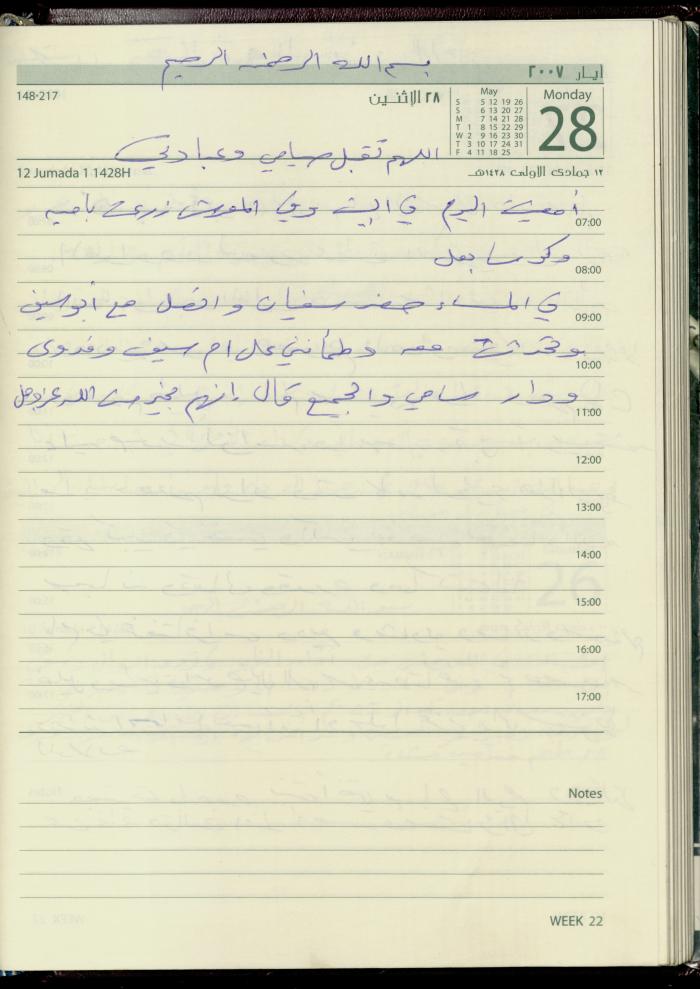 بسم الله الرحمن الرحيم
ايار ٢٠٠٧
148-217
٢٨ الاثنين
May
S 5 12 19 26
S 6 13 20 27
M 7 14 21 28
T 1 8 15 22 29
W 2 9 16 23 30
T 3 10 17 24 31
F 4 11 18 25
Monday
28
اللهم تقبل صيامي وعبادتي
12 Jumada 1 1428H
١٢ جمادى الاولى ١٤٢٨هـ
أمضيت اليوم في البيت وفي زرعت بامية
07:00
وكوسا بعل
08:00
في المساء حضر سفيان واتصل مع أبو سيف
09:00
وتحدثت معه وطمأنني على ام سيف وفدوى
10:00
ودار سامي والجميع قال إنهم بخير من الله عز وجل
11:00
12:00
13:00
14:00
15:00
16:00
17:00
Notes
WEEK 22